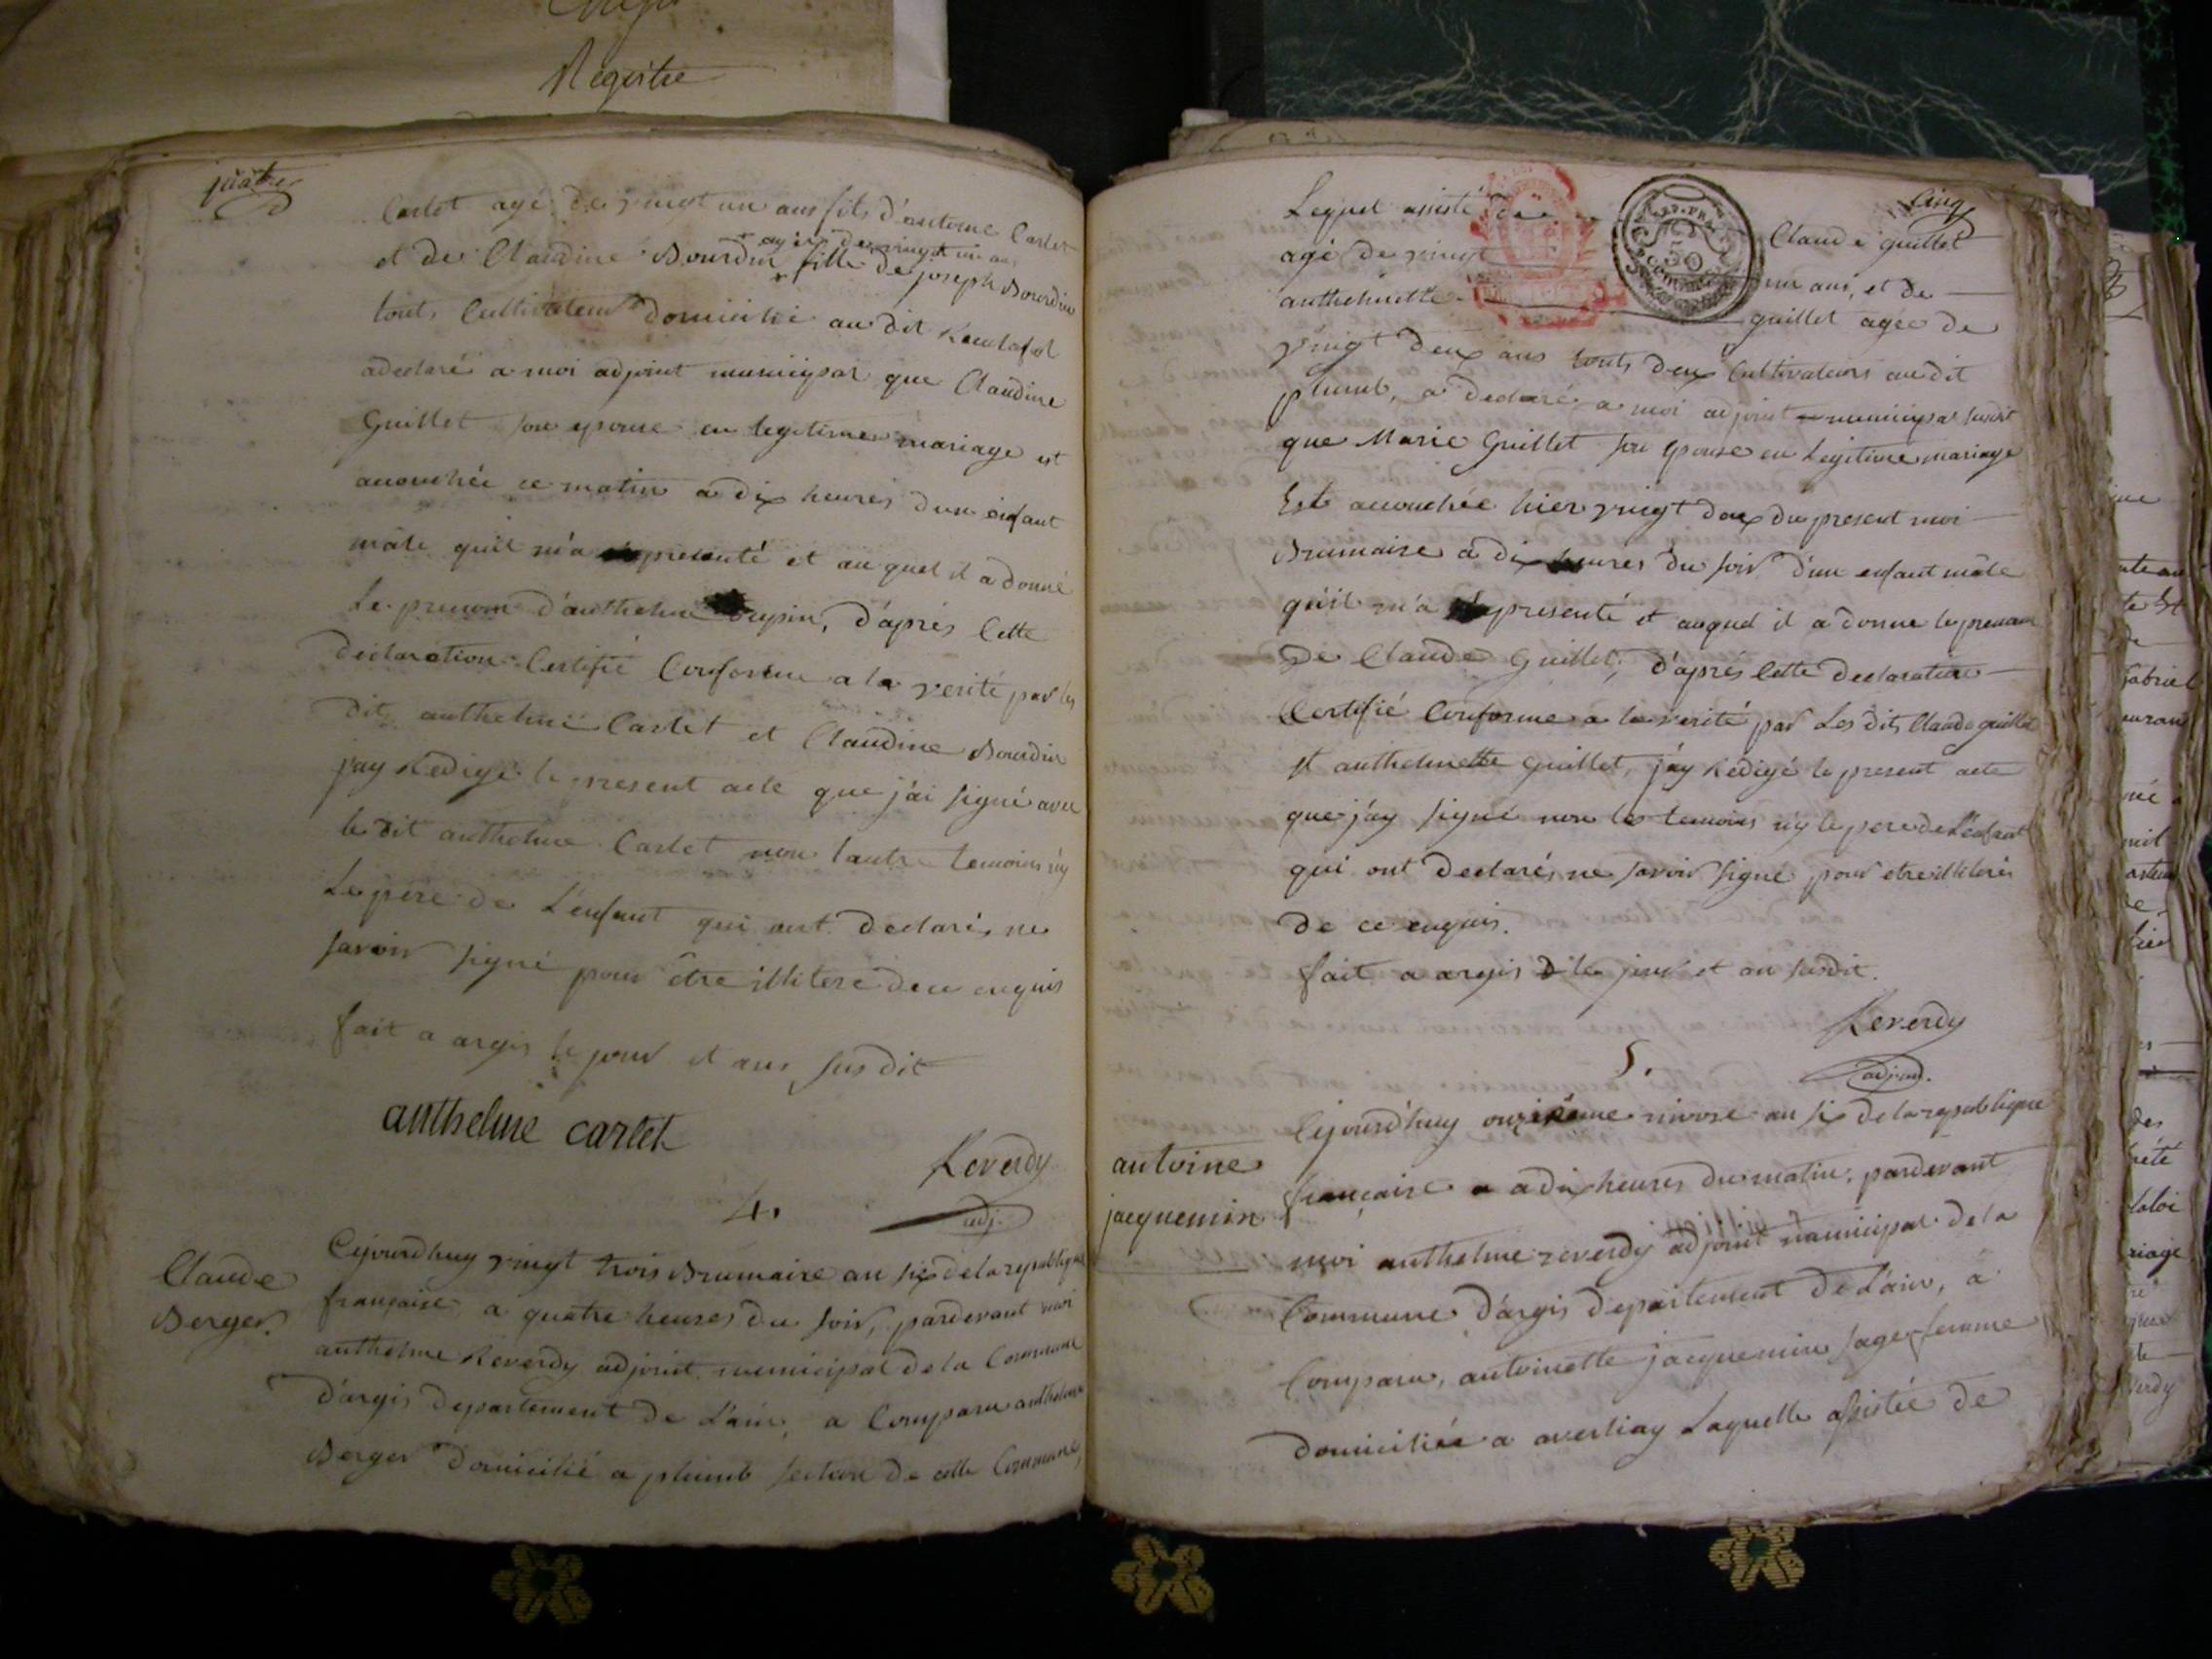 Registre
quatre
Carlet agé de vingt un ans fils d'antoine Carlet
et de Claudine Bourdin + agée de vingt un ans
+ fille de joseph Bourdin
touts Cultivateurs domicilié au dit
a declaré a moi adjoint municipal que Claudine
Guillet son epouse en legitime mariage est
accouchée ce matin a dix heures d'un enfant
mâle qu'il m'a presenté et au quel il a donné
Le prenom d'anthelme d'aprés Cette
déclaration Certifié Conforme a la verité par les
dits anthelme Carlet et Claudine Bourdin
j'ay Redigé le present acte que j'ai signé avec
le dit anthelme Carlet non l'autre temoins n'y
Le pere de L'enfant qui ont declarés ne
savoir signé pour être illiteré de ce enquis
fait a argis le jour et ans susdit
anthelme carlet
Reverdy
adj.
4.
Claude
Berger.
Cejourd'huy vingt trois Brumaire an six de la republique
française a quatre heures du soir, pardevant moi
anthelme Reverdy adjoint municipal de la Commune
d'argis departement de L'ain, a Comparu anthelme
Berger domicilié a plumb section de cette Commune,
Cinq
Lequel assisté de Claude guillet
agé de vingt un ans, et de
anthelmette guillet agée de
vingt deux ans touts deux Cultivateurs au dit
plumb, a declaré a moi adjoint municipal susdit
que Marie Guillet son epouse en Legitime mariage
Est accouchée hier vingt deux du present moi
Brumaire a dix heures du soir d'un enfant mâle
qu'il m'a presenté et auquel il a donné le prenom
De Claude Guillet, d'aprés Cette declaration
Certifié Conforme a la verité par Les dits Claude guillet
et anthelmette guillet, j'ay Redigé le present acte
que j'ay signé non les temoins n'y le pere de L'enfant
qui ont declarés ne savoir signé pour etre illiterés
de ce enquis.
fait a argis le jour et an susdit.
Reverdy
adjoint.
5.
antoine
jacquemin
Cejourd'huy onzieme nivose an six de la republique
française a dix heures du matin, pardevant
moi anthelme reverdy adjoint municipal de la
Commune d'argis departement de L'ain, a
Comparu, antoinette jacquemin sage femme
domiciliée a Laquelle assistée de